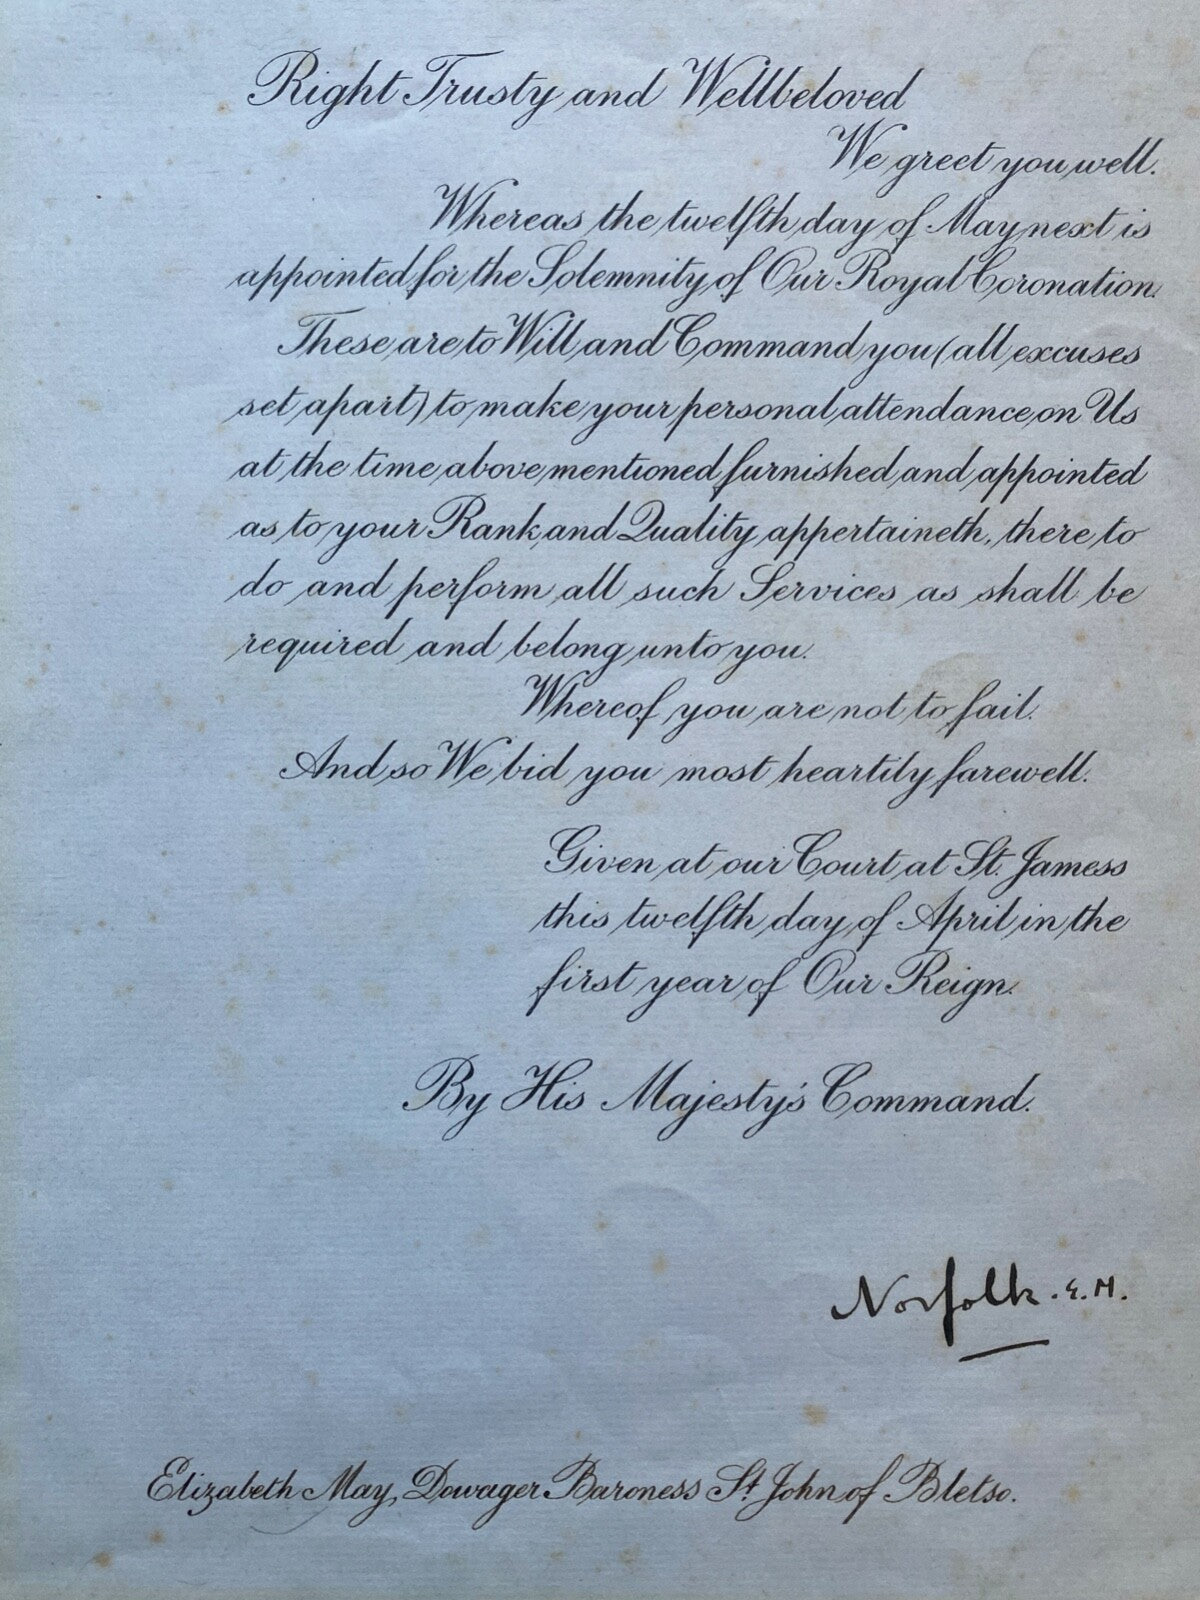 Right Trusty and Wellbeloved
We greet you well.
Whereas the twelfth day of May next is
appointed for the Solemnity of Our Royal Coronation.
These are to Will and Command you (all excuses
set apart) to make your personal attendance on Us
at the time above mentioned furnished and appointed
as to your Rank and Quality appertaineth, there to
do and perform all such Services as shall be
required and belong unto you.
Whereof you are not to fail.
And so We bid you most heartily farewell.
Given at our Court at St. Jamess
this twelfth day of April in the
first year of Our Reign.
By His Majesty's Command.
Norfolk. E.M.
Elizabeth May, Dowager Baroness St John of Bletso.